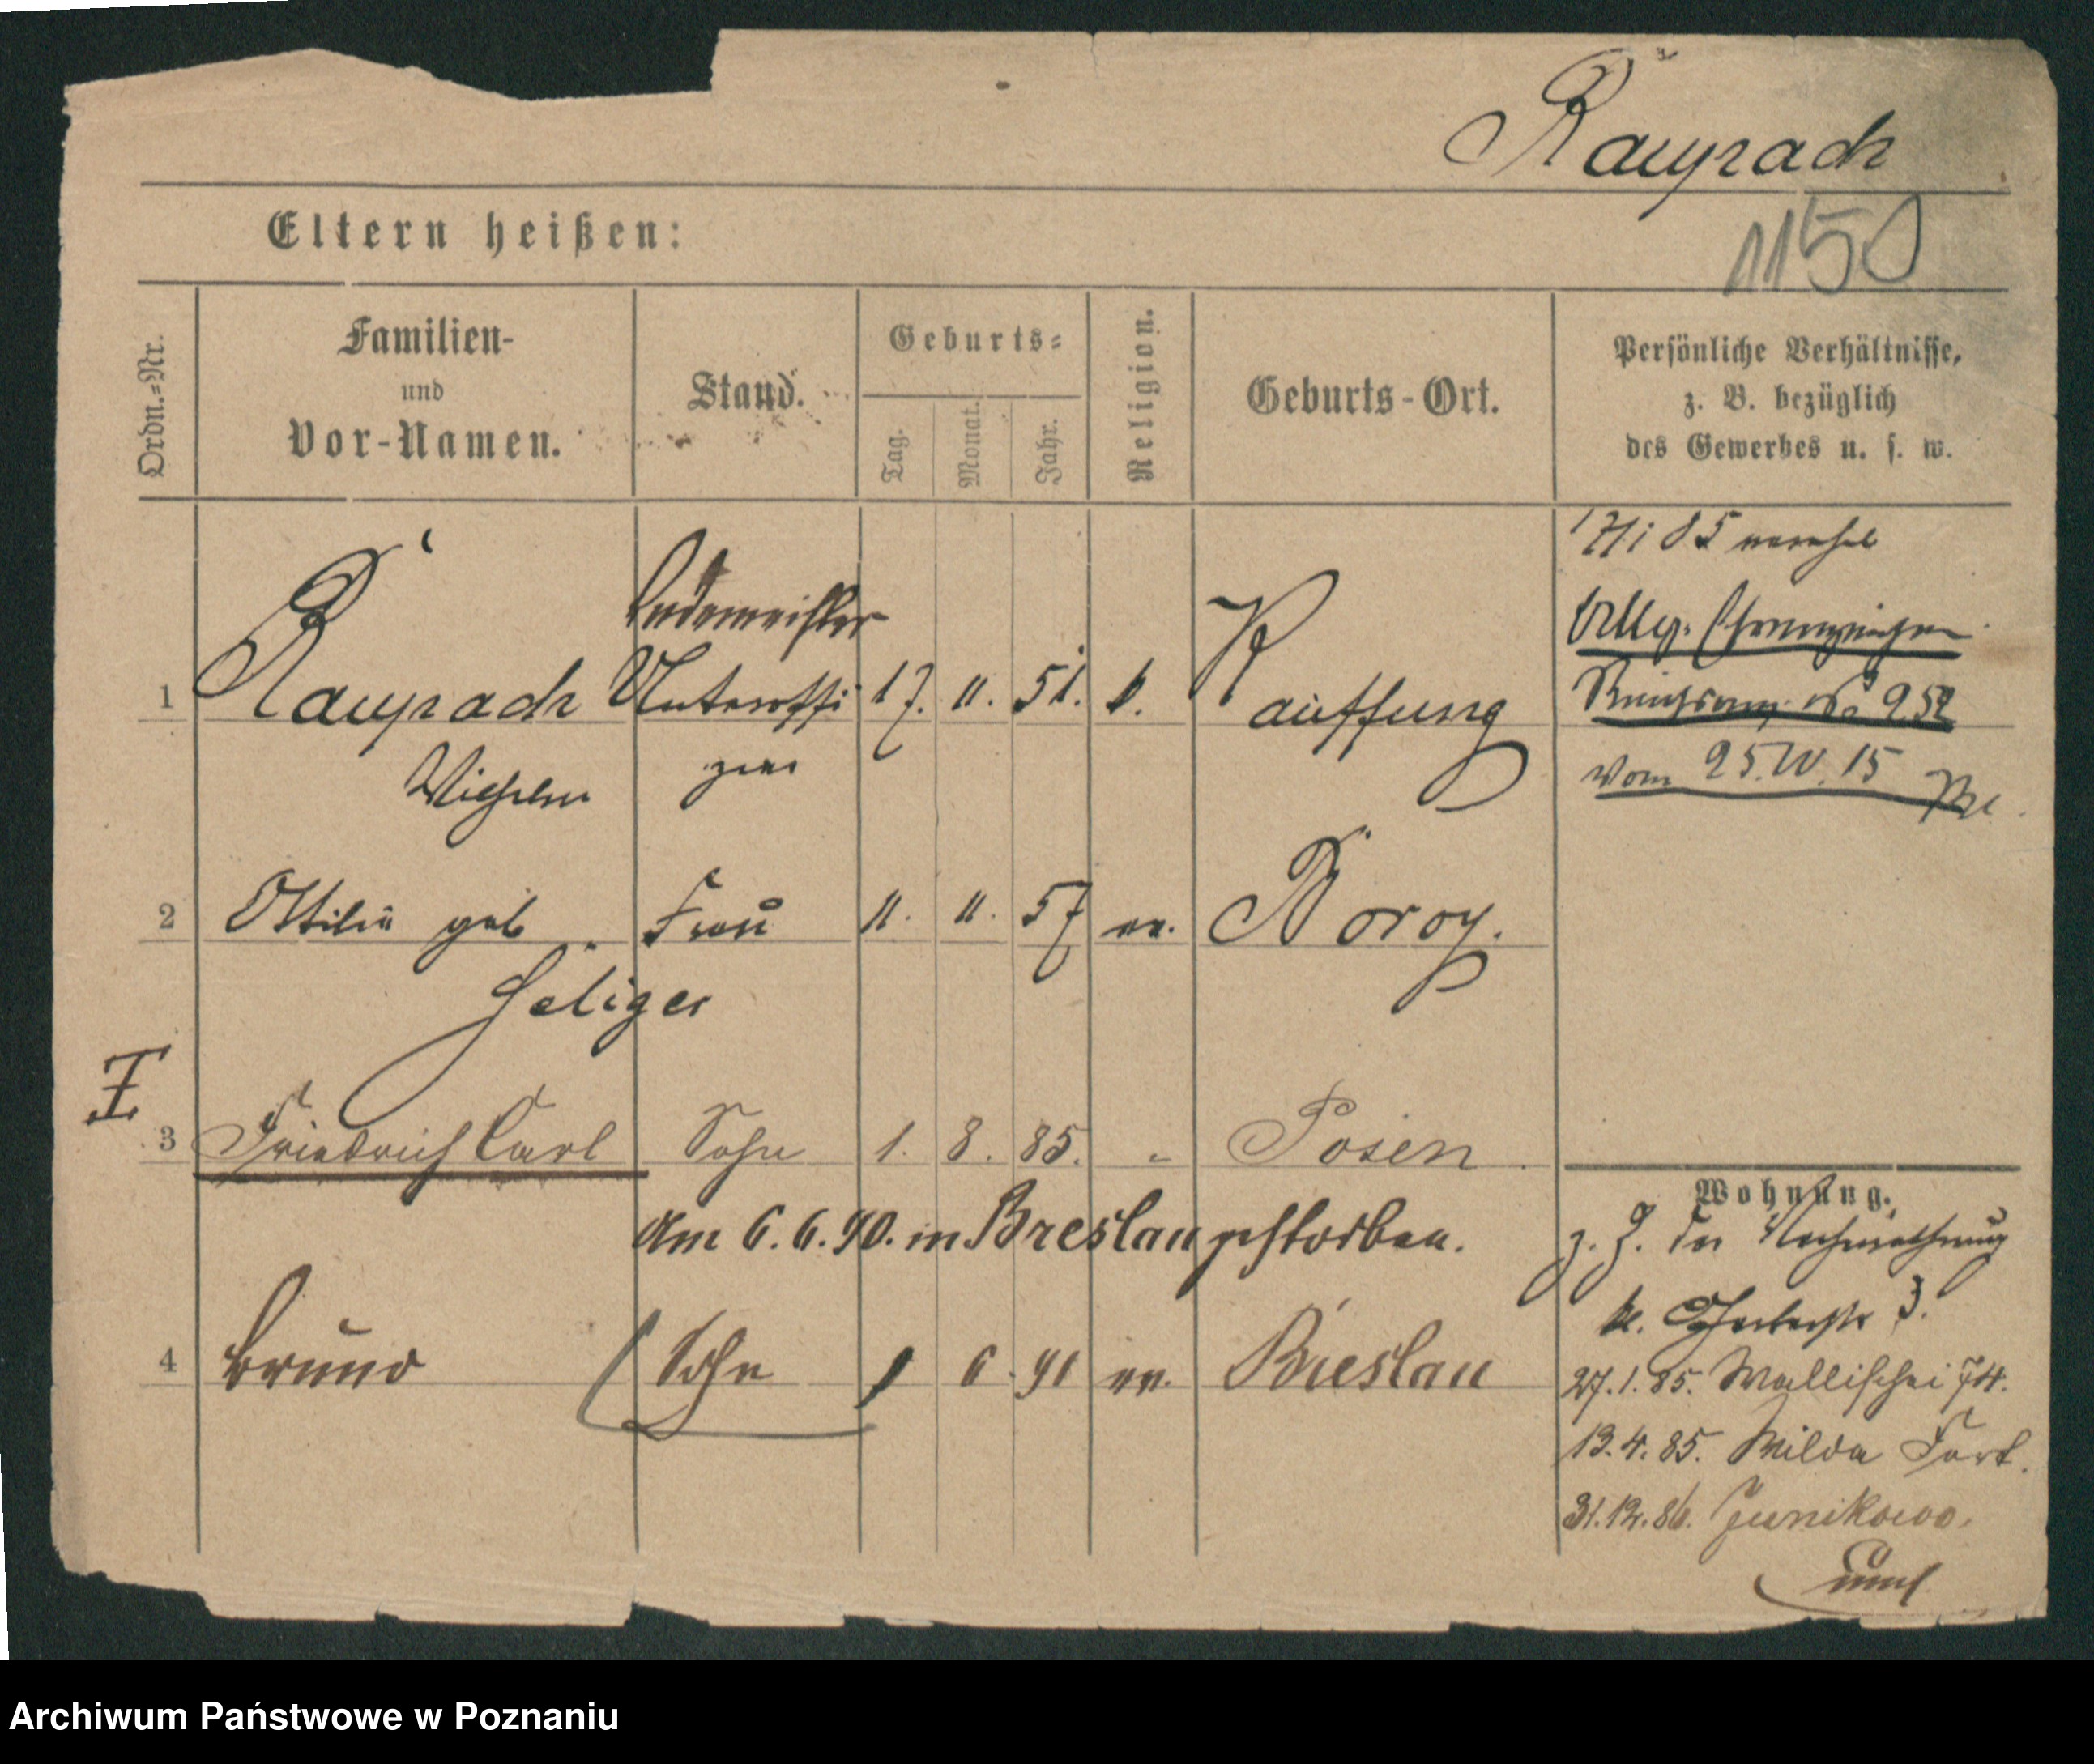 Raupach
1150
Eltern heißen:
Ordn.=Nr.
Familien-
und
Vor-Namen.
Stand.
Geburts=
Tag.
Monat.
Jahr.
Religion.
Geburts-Ort.
Persönliche Verhältnisse,
z. B. bezüglich
des Gewerbes u. s. w.
Lademeister
1 Raupach Unteroffi 17. 11. 51. k. Kauffung
Wilhelm zier
vom 25. IV. 15
2 Ottilie geb. Frau 11. 11. 57 ev.
Heliger
I
3 Friedrich Carl Sohn 1. 8. 85. " Posen
am 6. 6. 90. in Breslau gestorben.
4 Bruno Sohn 1 6. 91 ev. Breslau
Wohnung.
kl. Gerberstr 3.
27. 1. 85. Wallischei 74.
13. 4. 85. Wilda Fort.
31. 12. 86. Junikowo.
Archiwum Państwowe w Poznaniu